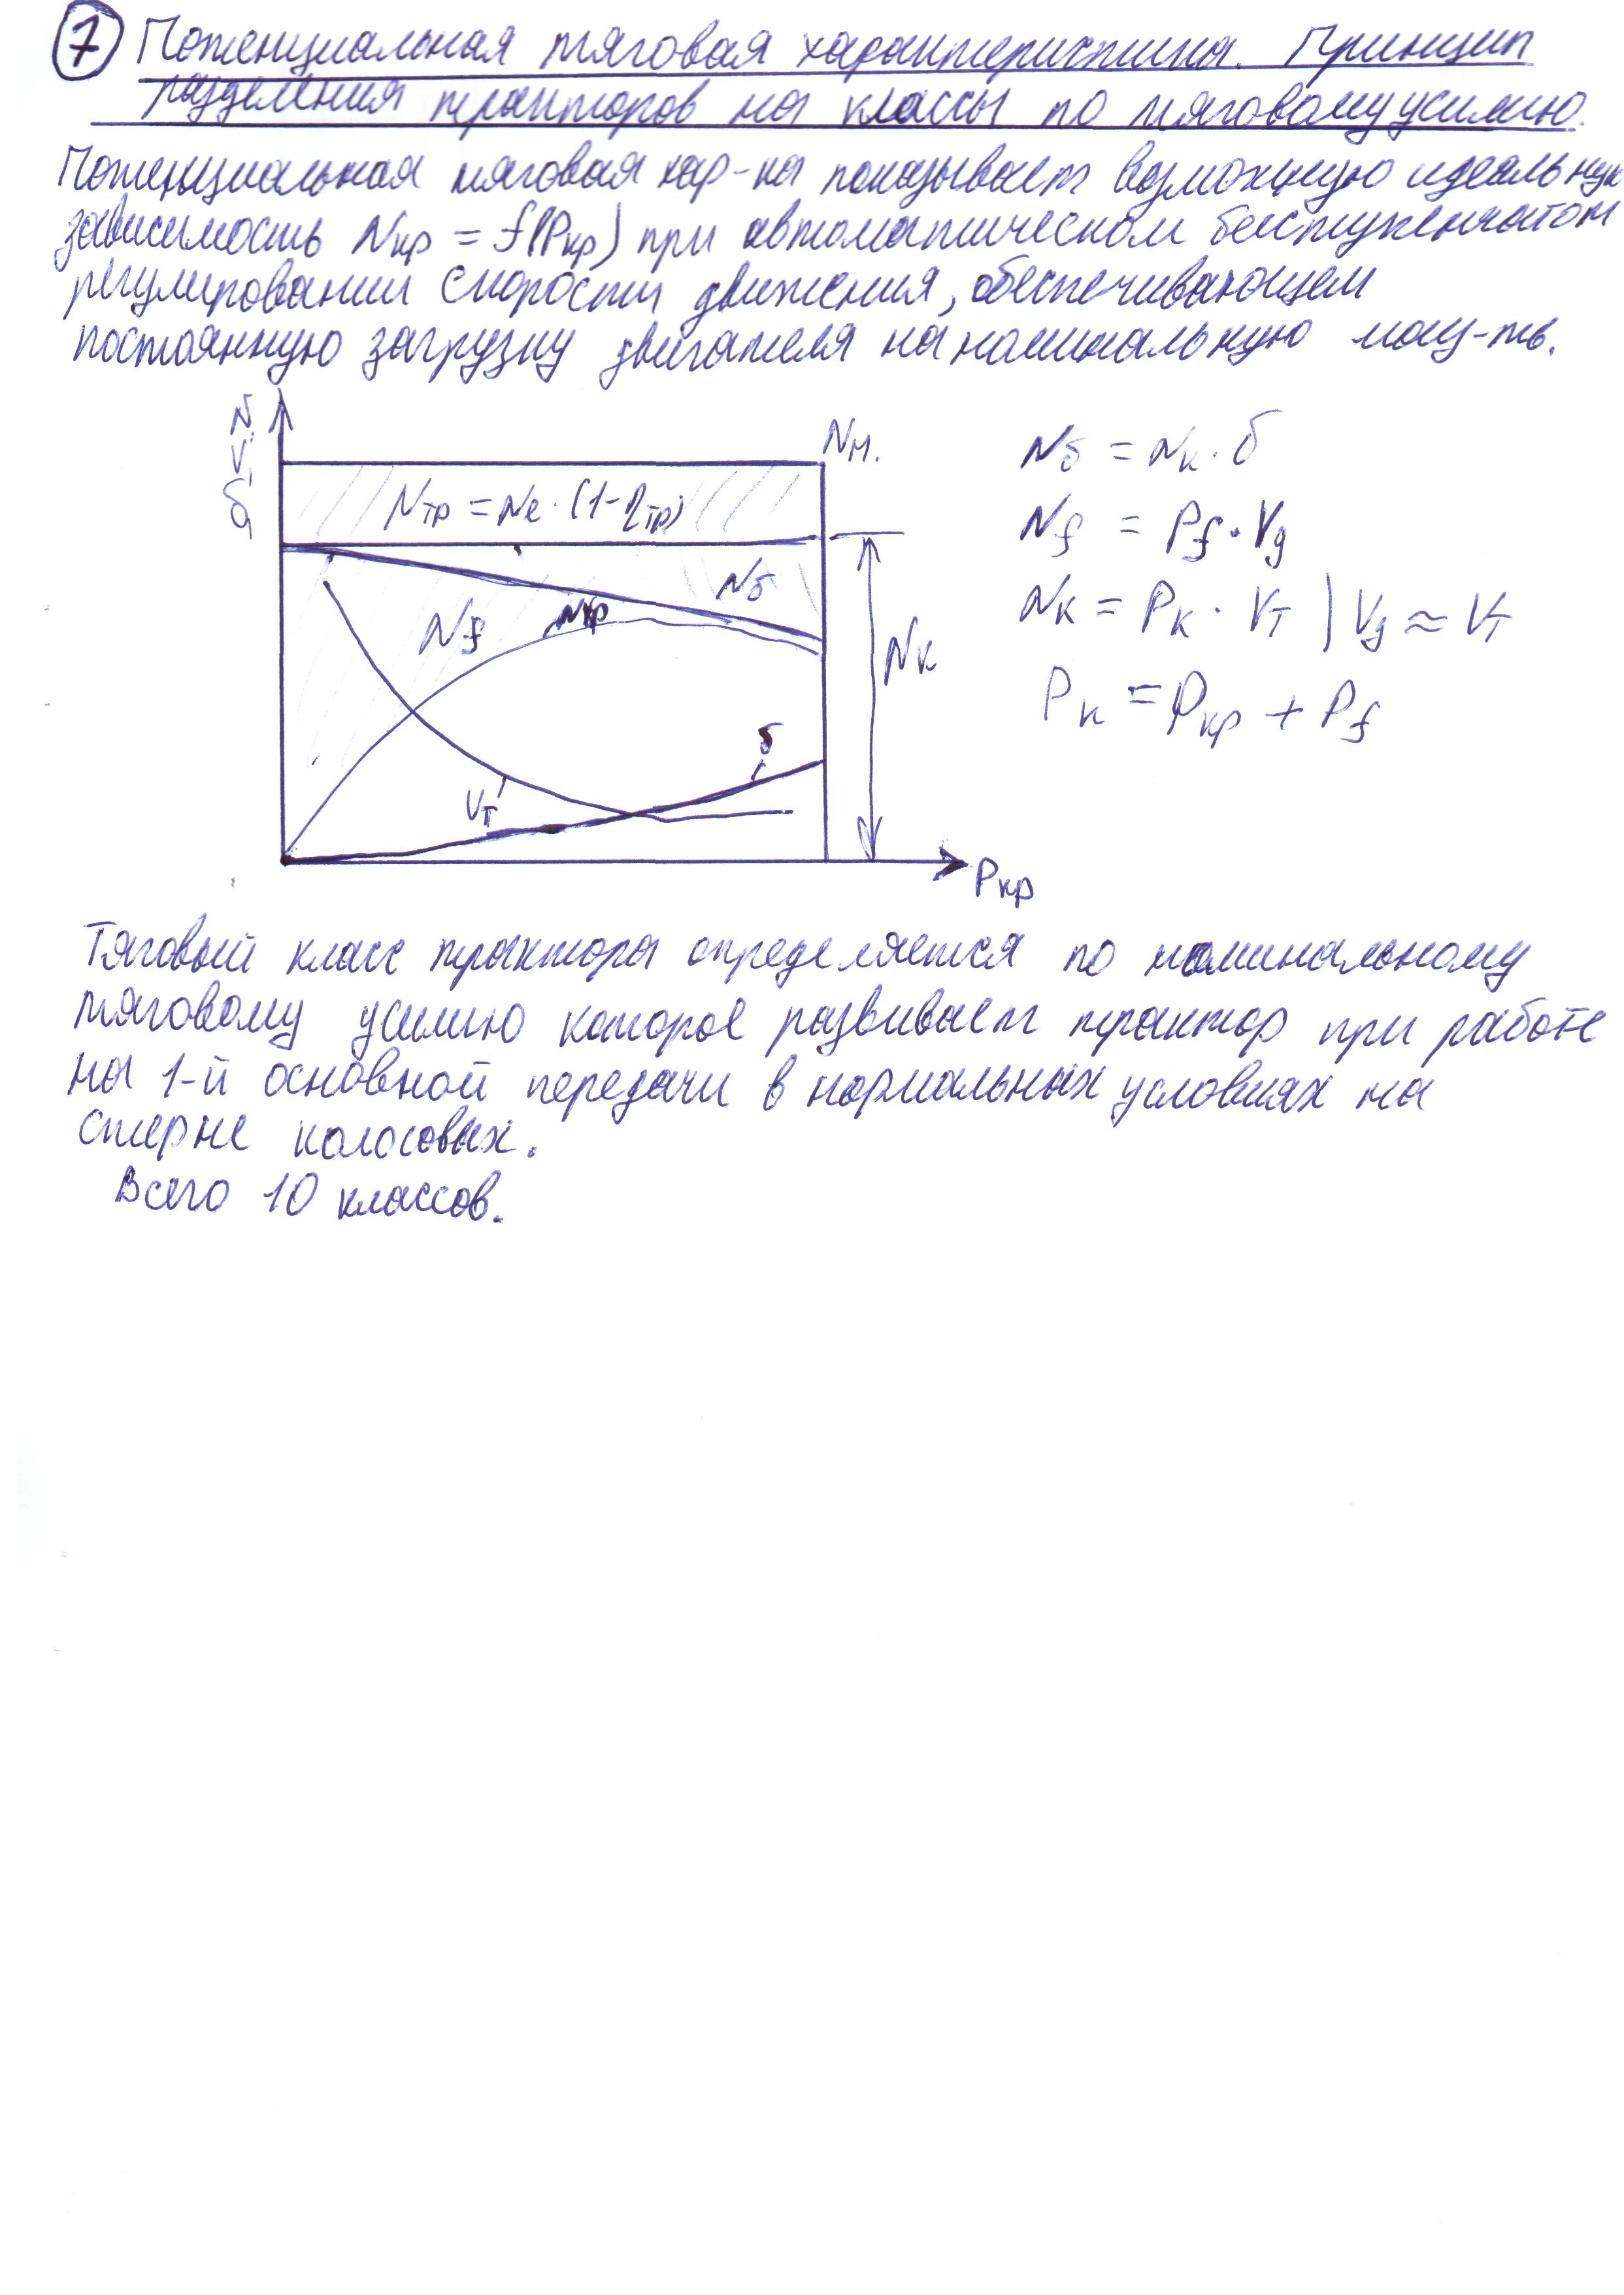 7 Потенциальная тяговая характеристика. Принцип
разделения тракторов на классы по тяговому усилию.
Потенциальная тяговая хар-ка показывает возможную идеальную
зависимость Nкр = f(Pкр) при автоматическом бесступенчатом
регулировании скорости движения, обеспечивающем
постоянную загрузку двигателя на номинальную мощ-ть.
N,
V,
δ
Nн.
Nтр = Ne · (1-ηтр)
Nδ
Nf
Nкр
Nк
δ
Vт
Pкр
Nδ = Nк · δ
Nf = Pf · Vд
Nк = Pк · Vт | Vд ≈ Vт
Pк = Pкр + Pf
Тяговый класс трактора определяется по номинальному
тяговому усилию которое развивает трактор при работе
на 1-й основной передачи в нормальных условиях на
стерне колосовых.
Всего 10 классов.